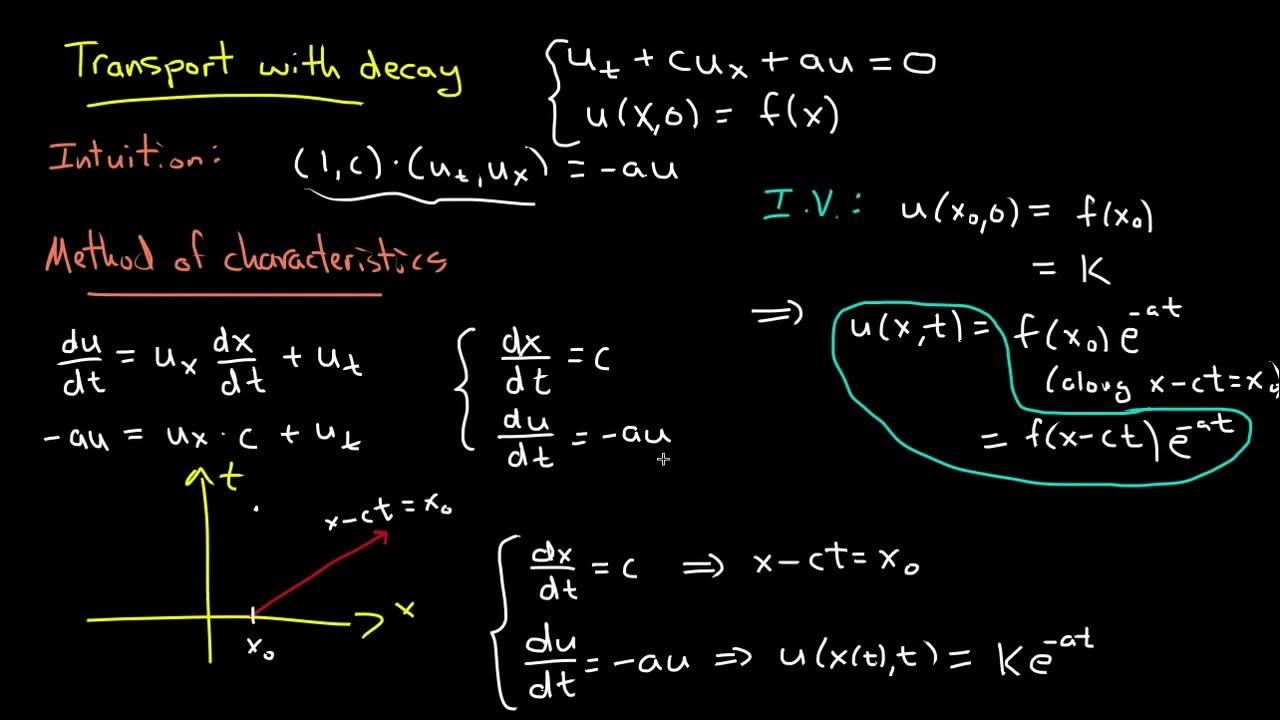 Transport with decay
u_t + cu_x + au = 0
u(x,0) = f(x)
Intuition: (1,c)·(u_t,u_x) = -au
Method of characteristics
du/dt = u_x dx/dt + u_t
-au = u_x · c + u_t
dx/dt = c
du/dt = -au
I.V.: u(x₀,0) = f(x₀)
= K
⇒ u(x,t) = f(x₀)e^{-at}
(along x-ct=x₀)
= f(x-ct)e^{-at}
t
x-ct=x₀
x
x₀
dx/dt = c ⇒ x-ct=x₀
du/dt = -au ⇒ u(x(t),t) = Ke^{-at}